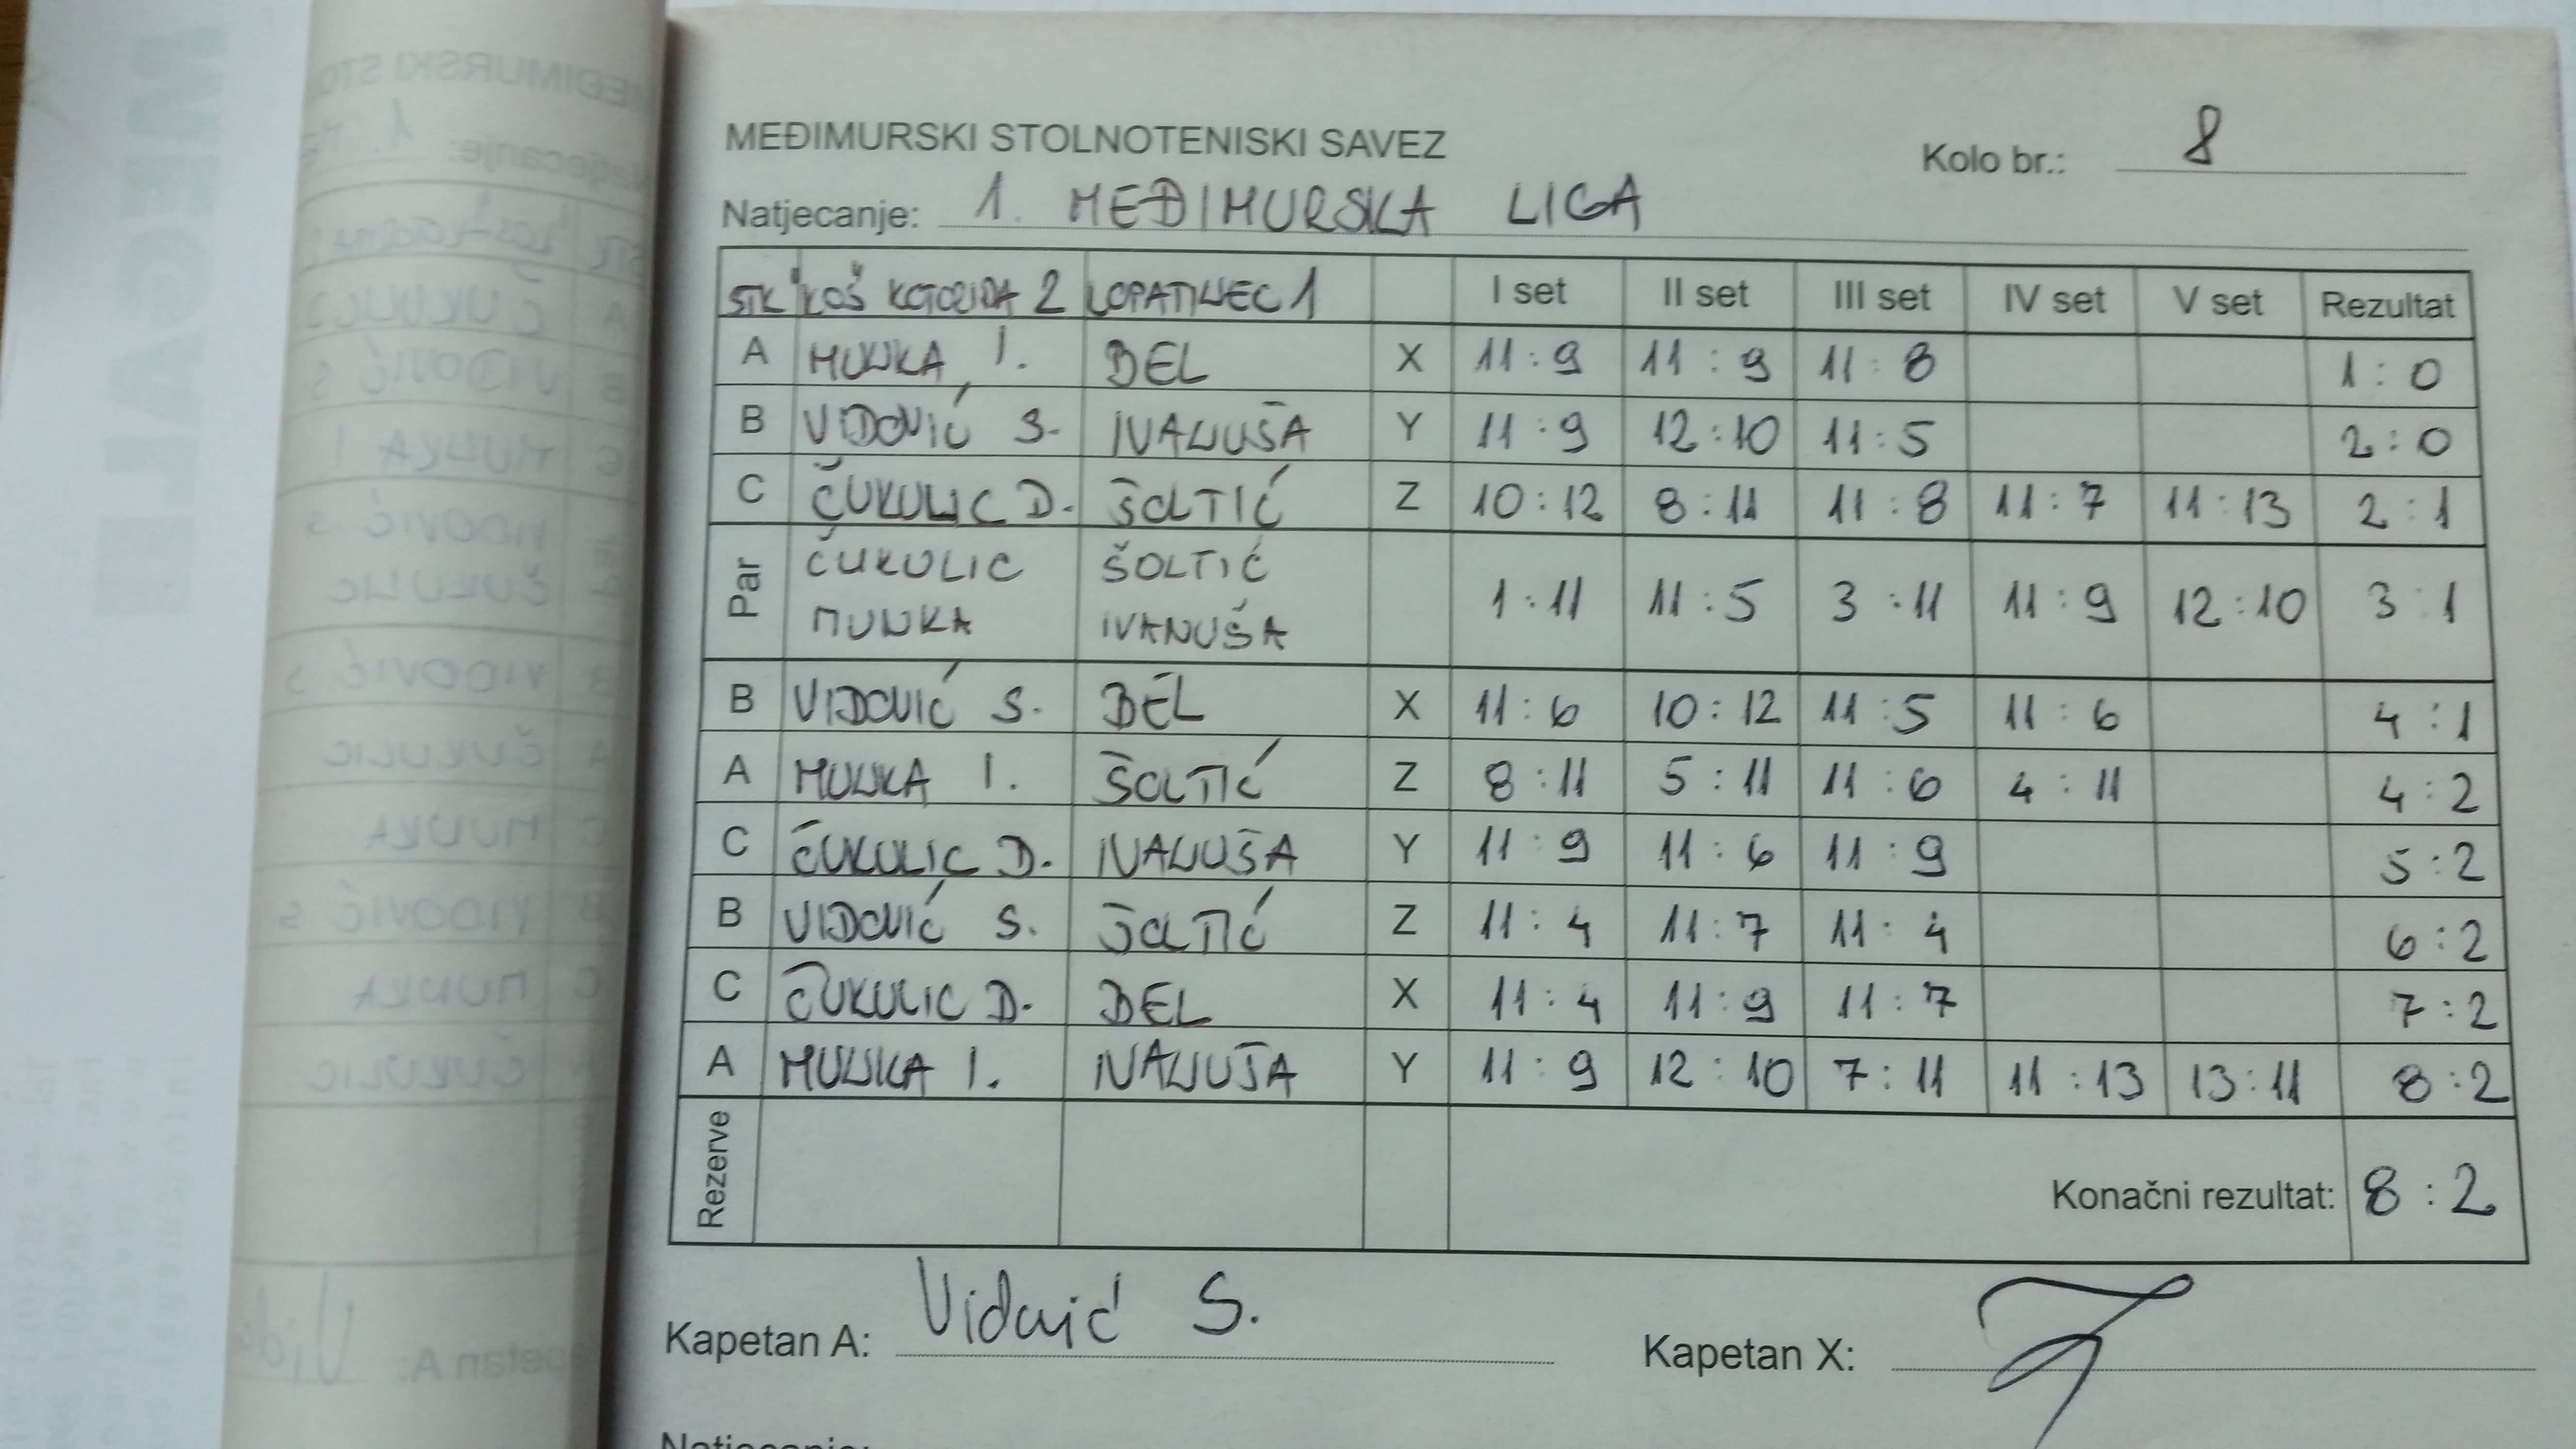 MEĐIMURSKI STOLNOTENISKI SAVEZ
Kolo br.: 8
Natjecanje: 1. MEĐIMURSKA LIGA
STK "KOŠ KOTORIBA 2 LOPATINEC 1 I set II set III set IV set V set Rezultat
A MUNKA I. BEL X 11:9 11:9 11:8 1:0
B VIDOVIĆ S. IVANUŠA Y 11:9 12:10 11:5 2:0
C ČUKULIC D. ŠOLTIĆ Z 10:12 8:11 11:8 11:7 11:13 2:1
Par ČUKULIC MUNKA ŠOLTIĆ IVANUŠA 1:11 11:5 3:11 11:9 12:10 3:1
B VIDOVIĆ S. BEL X 11:6 10:12 11:5 11:6 4:1
A MUNKA I. ŠOLTIĆ Z 8:11 5:11 11:6 4:11 4:2
C ČUKULIC D. IVANUŠA Y 11:9 11:6 11:9 5:2
B VIDOVIĆ S. ŠOLTIĆ Z 11:4 11:7 11:4 6:2
C ČUKULIC D. BEL X 11:4 11:9 11:7 7:2
A MUNKA I. IVANUŠA Y 11:9 12:10 7:11 11:13 13:11 8:2
Rezerve
Konačni rezultat: 8:2
Kapetan A: Vidović S.
Kapetan X:
Natjecanje: